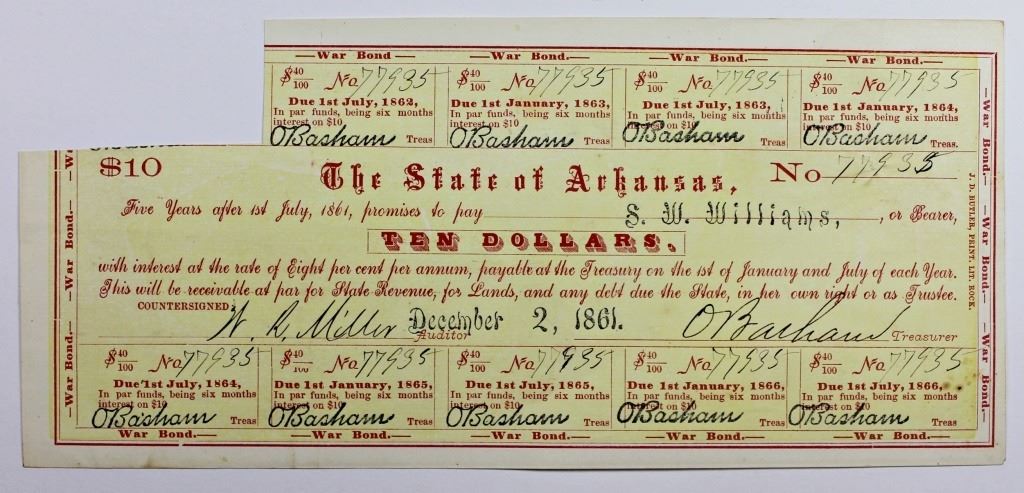 —War Bond— —War Bond.— —War Bond.— —War Bond.—
$40/100 No. 77935 $40/100 No. 77935 $40/100 No. 77935 $40/100 No. 77935
Due 1st July, 1862, Due 1st January, 1863, Due 1st July, 1863, Due 1st January, 1864,
In par funds, being six months In par funds, being six months In par funds, being six months In par funds, being six months
interest on $10 interest on $10 interest on $10 interest on $10
O Basham Treas O Basham Treas. O Basham Treas. O Basham Treas.
$10 The State of Arkansas, No 77935
Five Years after 1st July, 1861, promises to pay S. W. Williams, or Bearer,
TEN DOLLARS,
with interest at the rate of Eight per cent per annum, payable at the Treasury on the 1st of January and July of each Year.
This will be receivable at par for State Revenue, for Lands, and any debt due the State, in her own right or as Trustee.
COUNTERSIGNED,
W. R. Miller Auditor December 2, 1861. O Basham Treasurer
$40/100 No. 77935 $40/100 No. 77935 $40/100 No. 77935 $40/100 No. 77935 $40/100 No. 77935
Due 1st July, 1864, Due 1st January, 1865, Due 1st July, 1865, Due 1st January, 1866, Due 1st July, 1866,
In par funds, being six months In par funds, being six months In par funds, being six months In par funds, being six months In par funds, being six months
interest on $10 interest on $10 interest on $10 interest on $10 interest on $10
O Basham Treas O Basham Treas O Basham Treas O Basham Treas O Basham Treas
War Bond.— —War Bond.— —War Bond.— —War Bond.— —War Bond.—
—War Bond.— —War Bond.— —War Bond.—
—War Bond.— —War Bond.— —War Bond.— —War Bond.—
J. D. BUTLER, PRINT. LIT. ROCK.